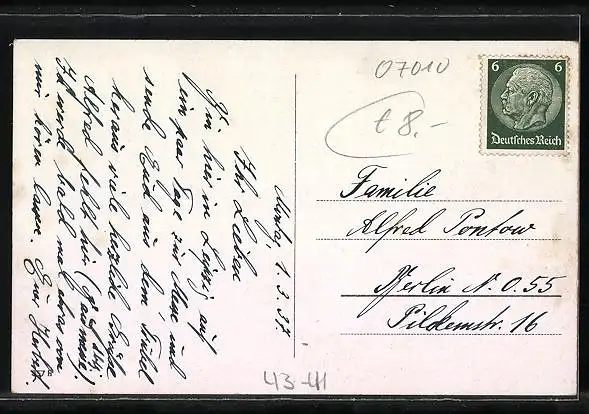 07010
€ 8.-
6 6
Deutsches Reich
Familie
Alfred Pontow
Berlin N.O. 55
Pildemstr. 16
43-41
Montag, 1.3.37.
Ihr Lieben
Bin hier in Leipzig auf
ein paar Tage zur Messe und
sende Euch aus dem Trubel
heraus viele herzliche Grüße
Alfred fehlt hier
Ich werde bald mal etwas von
mir hören lassen. Euer Herbert.